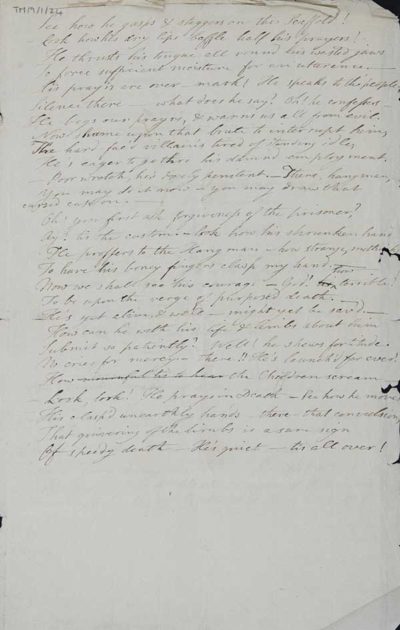 TM19/1/24
See how he gasps & staggers on the Scaffold!
Look how his dry lips baffle half his prayers!
He thrusts his tongue all round his wasted jaws
To force sufficient moisture for an utterance. —
His prayers are over — mark! He speaks to the people
Silence there — what does he say? Oh! he confesses —
He begs our prayers, & warns us all from evil.
Now shame upon that brute to interrupt him,
The hard face villain's tired of standing idle,
He's eager to get thro his damned employment,
— Poor wretch, he's deeply penitent. — There, hangman,
You may do it now — you may draw that
cursed cap on. —
Oh! you first ask forgiveness of the prisoner?
Ay! tis the custom — look how his shrunken hand
He proffers to the Hangman — how strange,
To have his boney fingers clasp my hand
Now we shall see his courage — God! tis terrible
To be upon the verge of purposed death. —
He's yet alive, & well — might yet be saved —
How can he with his life & limbs about him
Submit so patiently? Well! he shews fortitude.
No cries for mercy — there!! He's launch'd for ever!
How mournful tis to hear the Children scream
Look, look! He prays in Death — See how he moves
His clasped unearthly hands — there — that convulsion,
That quivering of the limbs is a sure sign
Of speedy death — He's quiet — tis all over!